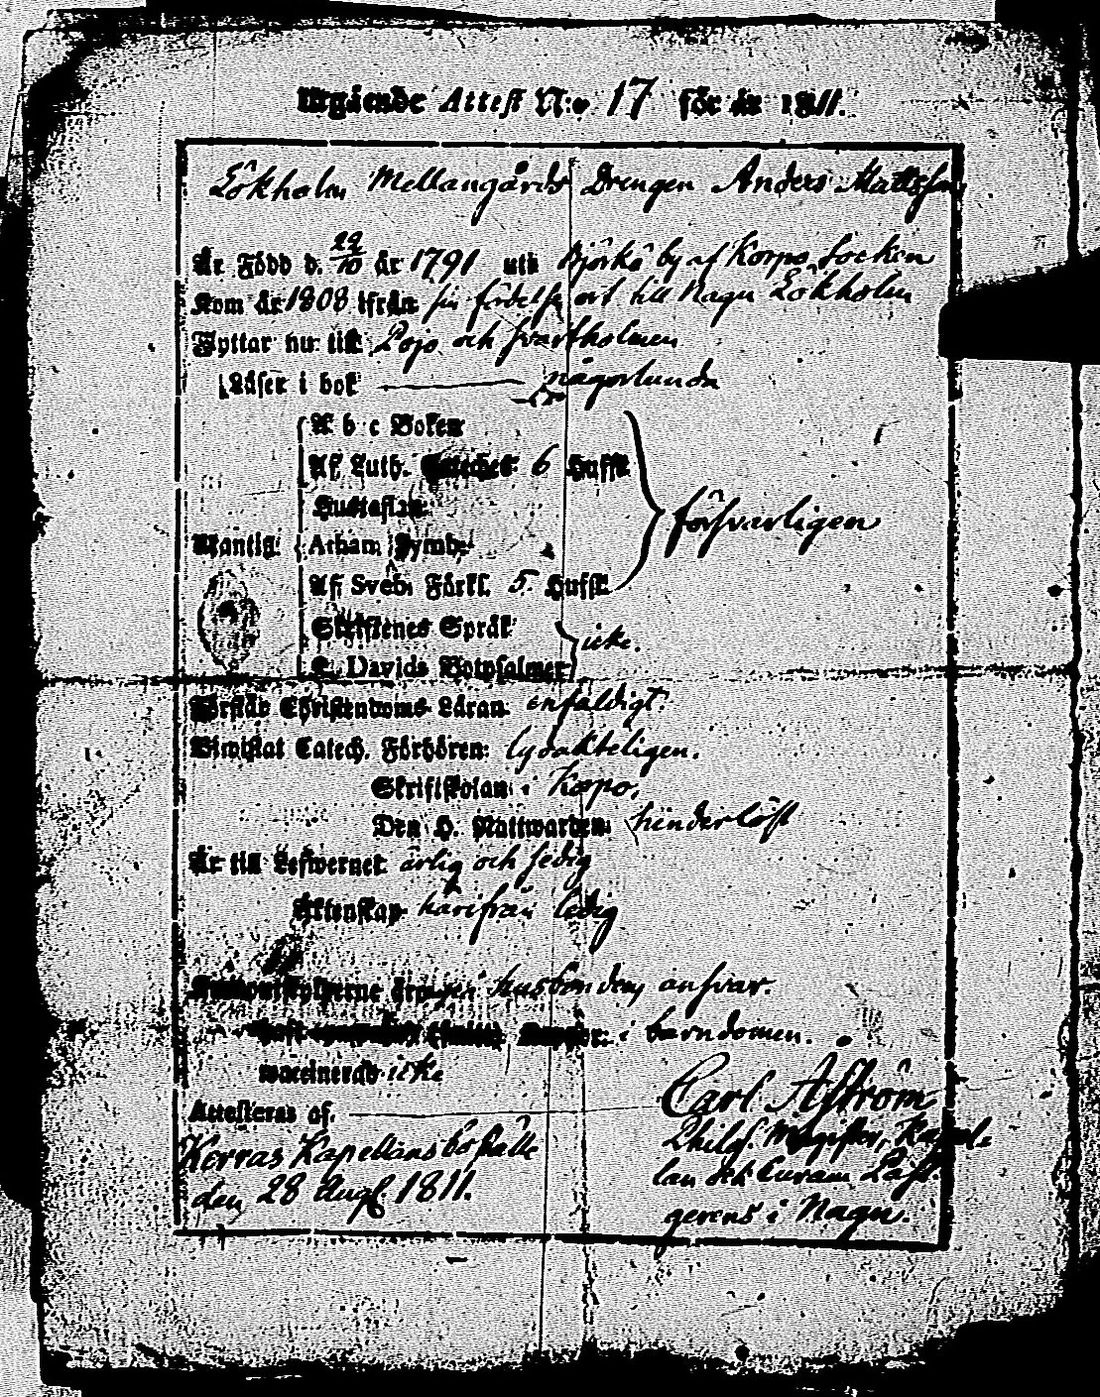 Utgående Attest N:o 17 för år 1811.
Lökholm Mellangårds Drengen Anders Mattsson
Är Född d. 29/10 år 1791 uti Björkö by af Korpo Socken
Kom år 1808 ifrån sin födelse ort till Nagu Lökholm
Flyttar nu till Pojo och Svartholmen
Läser i bok någorlunda
A b c Boken
Af Luth. Cateches 6 Hufst.
Hustaflan
Wantil: Athan. Symb.
Af Sveb. Förkl. 5 Hufst.
försvarligen
Skriftenes Språk
icke.
K. Davids Botpsalmer
Förstår Christendoms Läran enfaldigt.
Biwistat Catech. Förhören: lydakteligen.
Skriftskolan i Korpo,
Den H. Nattwarden hinderlöst
Är till Lefwernet ärlig och sedig
Äktenskap härifrån ledig
husbondens answar.
haft i barndomen.
vaccinerad icke
Attesteras af.
Carl Aström
Korras Kapellansboställe
Philos. Magister, Kapel-
den 28 Aug. 1811.
lan och Curam Past.
gerens i Nagu.